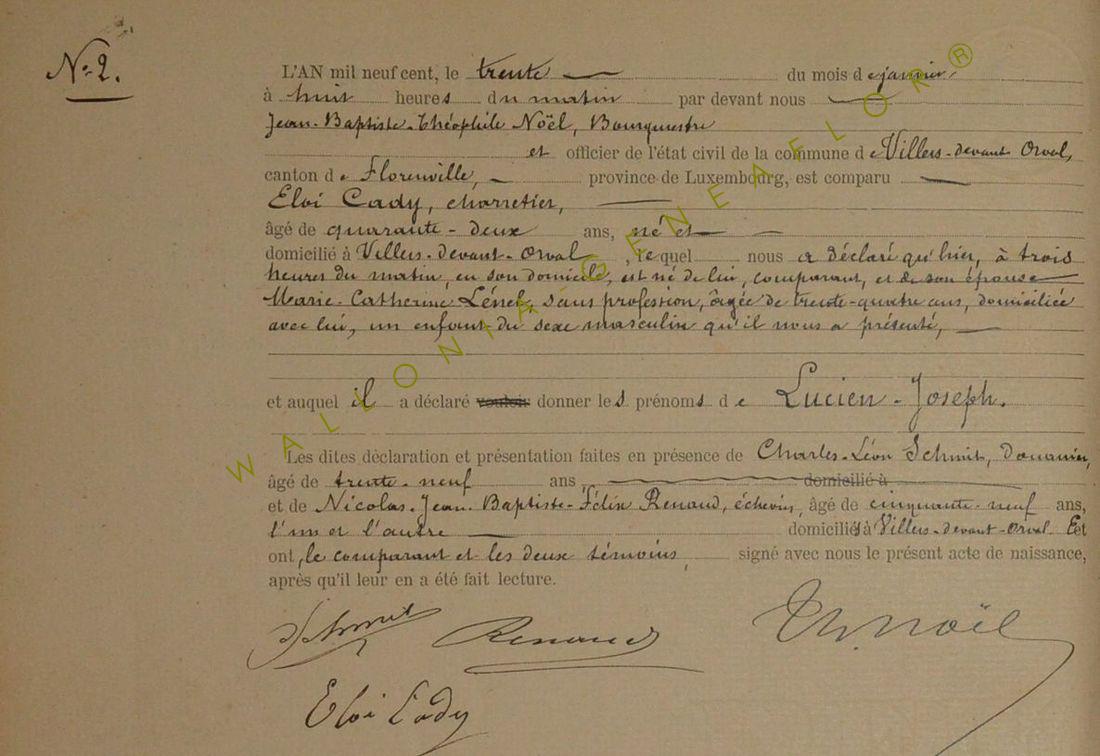 N° 2.
L'AN mil neuf cent, le trente du mois de janvier
à huit heures du matin par devant nous
Jean-Baptiste-Théophile Noël, Bourgmestre
et officier de l'état civil de la commune de Villers-devant-Orval,
canton de Florenville, province de Luxembourg, est comparu
Eloi Cady, charretier,
âgé de quarante-deux ans, né et
domicilié à Villers-devant-Orval, lequel nous a déclaré qu'hier, à trois
heures du matin, en son domicile, est né de lui, comparant, et de son épouse
Marie-Catherine Lénel, sans profession, âgée de trente-quatre ans, domiciliée
avec lui, un enfant du sexe masculin qu'il nous a présenté,
et auquel il a déclaré vouloir donner les prénoms de Lucien-Joseph.
Les dites déclaration et présentation faites en présence de Charles-Léon Schmit, Douanier,
âgé de trente-neuf ans domicilié à
et de Nicolas-Jean-Baptiste-Félix Renaud, échevin, âgé de cinquante-neuf ans,
l'un et l'autre domiciliés à Villers-devant-Orval. Et
ont, le comparant et les deux témoins, signé avec nous le présent acte de naissance,
après qu'il leur en a été fait lecture.
Schmit Renaud Th. Noël
Eloi Cady
WALLONIA GENEALOR ®